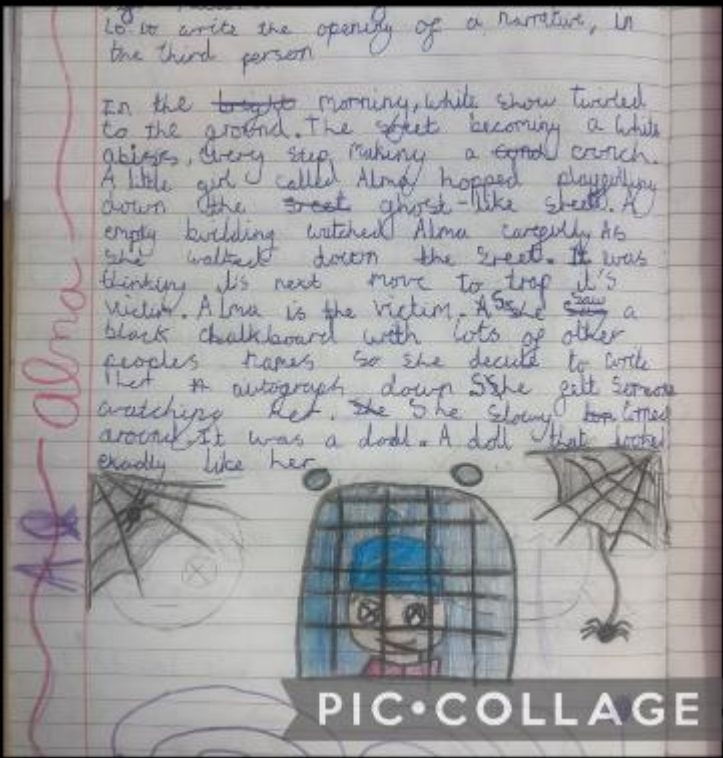 Lo: to write the opening of a narrative, in
the third person
In the bright morning, white snow twirled
to the ground. The street becoming a white
abisis, every step making a crunch.
A little girl called Alma hopped playfully
down the street ghost-like street. A
empty building watched Alma carefully As
she walked down the sreet. It was
thinking its next move to trap it's
victim. Alma is the victim. As she saw a
black chalkboard with lots of other
peoples names so she decide to write
her autograph down She felt someone
watching her. She She slowy turned
around. It was a doll. A doll that looked
exadly like her
alma
PIC•COLLAGE